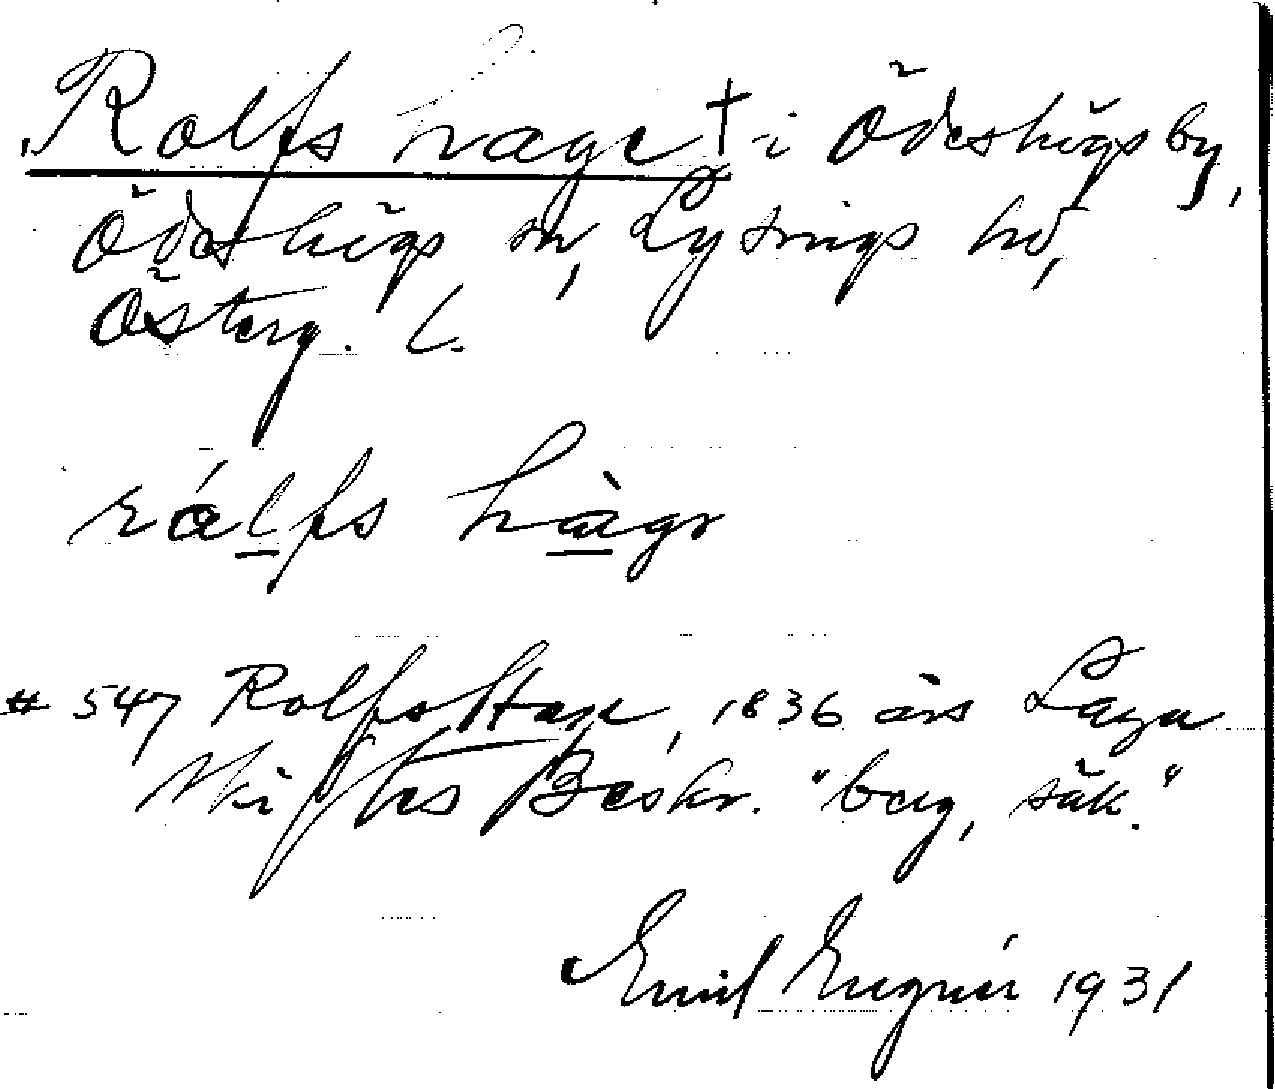 Rolfs hage † i Ödeshögs by,
Ödeshögs sn, Lysings hd,
Österg. L.
rálfs hàgr
# 547 Rolfs Hage, 1836 års Laga
Skiftes Beskr. "berg, säk."
Emil Eugnér 1931